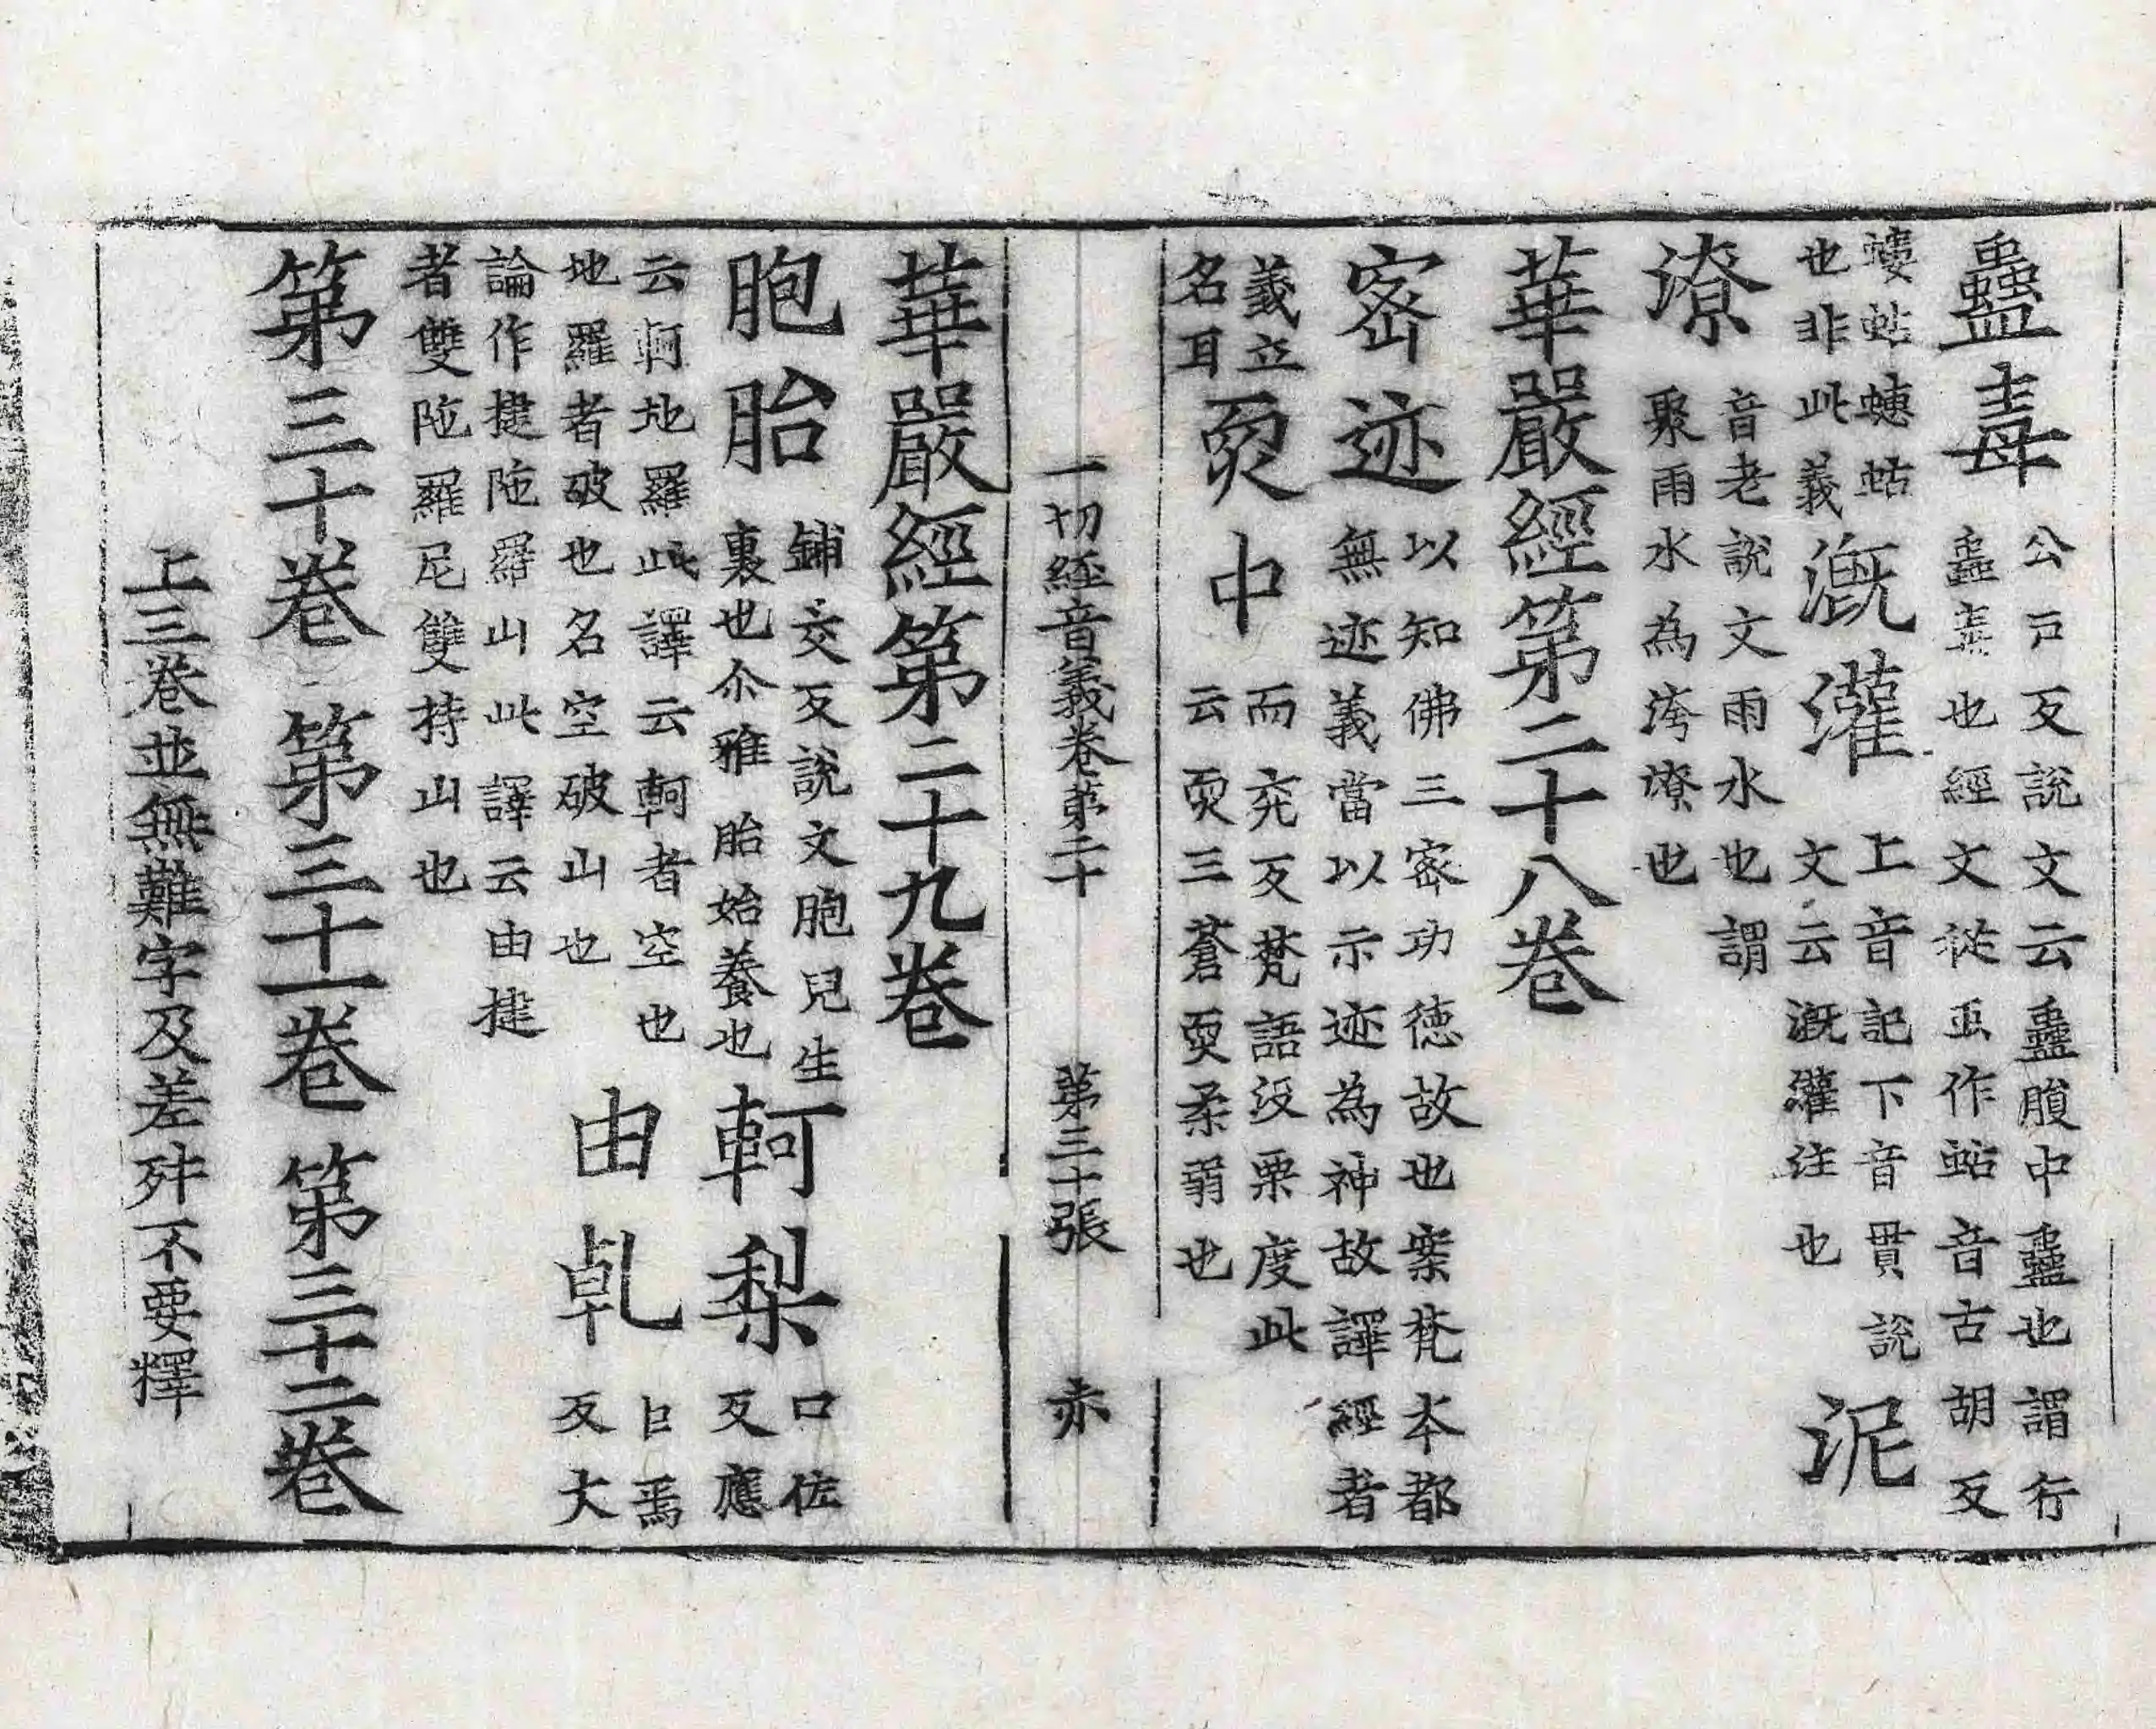 蠱毒公戸反說文云蠱腹中蠱也謂行蠱毒也經文從虫作蛄音古胡反
螻蛄蟪蛄也非此義漑灌上音記下音貫說文云漑灌注也泥
潦音老說文雨水也謂聚雨水為洿潦也
華嚴經第二十八卷
密迹以知佛三密功德故也案梵本都無迹義當以示迹為神故譯經者
義立名耳耎中而兖反梵語没栗度此云耎三蒼耎柔弱也
一切經音義卷第二十 第三十張 赤
華嚴經第二十九卷
胞胎鋪交反說文胞兒生裹也尒雅胎始養也軻梨口佐反應
云軻地羅此譯云軻者空也地羅者破也名空破山也由乹巨焉反大
論作揵陁羅山此譯云由揵者雙陁羅尼雙持山也
第三十卷 第三十一卷 第三十二卷
上三卷並無難字及差舛不要釋